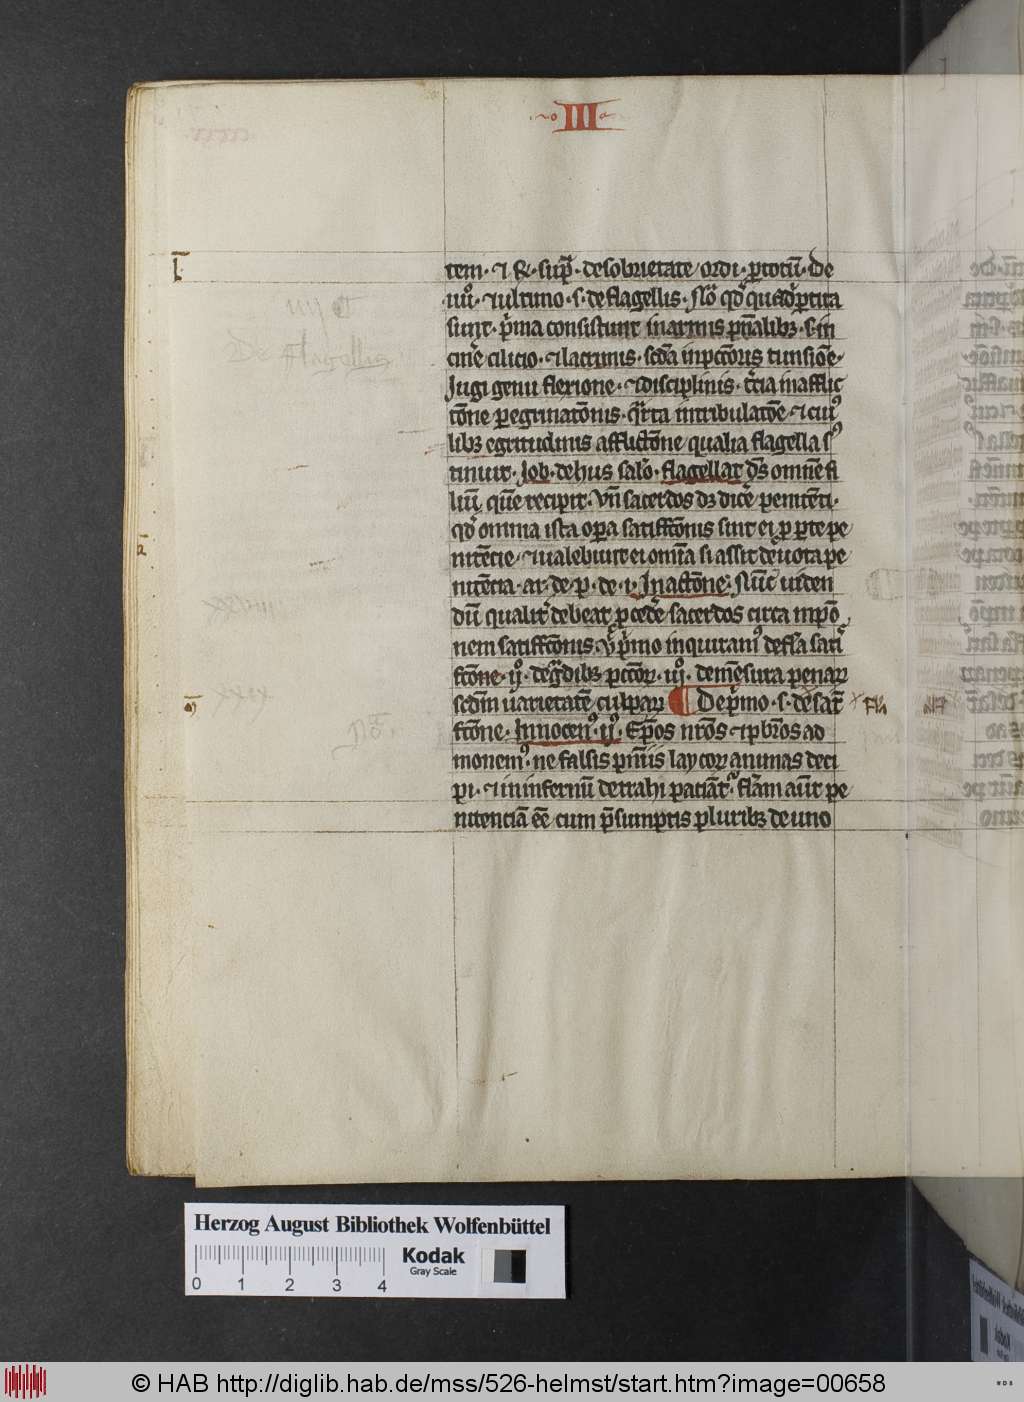 III
tem · ⁊ ff · sup̄ · de sobrietate / ordi · p totū · De
iiijͦ · ⁊ ultimo · s · de flagellis · Nͦ qd̓ quadͥptita
sunt · pͥma consistunt in armis pn̄alibꝫ · s · in
cine̓ cilicio · ⁊ lacrimis · scd̄a in pectoris tunsiōe ·
Iugi genu flexione · ⁊ disciplinis · tc̄ia in afflic
tōne peregrinatōnis · qͣrta in tribulatōe ⁊ cuiꝰ
libꝫ egritudinis afflictōne qualia flagella sꝰ
tinuit · Job · de hiis salo̓ · flagellat d̄s omnē fi
liū quē recipit · Vn̄ sacerdos dꝫ dice̓ penitēti ·
qd̓ omnia ista opa satisfc̄onis sint ei p pte pe
nitēcie · ⁊ ualebunt ei om̄ia si assit deuota pe
nitēcia · ar · de p · de · i · In actōne · Nūc uiden
dū qualit̓ debeat pcede̓ sacerdos circa inpo̓
nem satisfc̄onis · ⁊ pͥmo inquiramꝰ de fl̄a sati
fc̄one · ijͦ · de gͣdibꝫ pctoꝝ · iijͦ · de mēsura penaꝝ
scdm̄ uarietatē culpaꝝ ¶ De pͥmo · s · de fl̄a satͥ
fc̄one · Innocenꝰ · ijꝰ · Ep̄os nr̄os ⁊ pbr̄os ad
monemꝰ · ne falsis pn̄iis laycoꝝ animas deci
pi · ⁊ in infernū detrahi paciāt̓ · fl̄am aūt pe
nitenciā ee̅ cum p̄sumptis pluribꝫ de uno
De flagellis
xxxx
Herzog August Bibliothek Wolfenbüttel
0 1 2 3 4
Kodak
Gray Scale
© HAB http://diglib.hab.de/mss/526-helmst/start.htm?image=00658